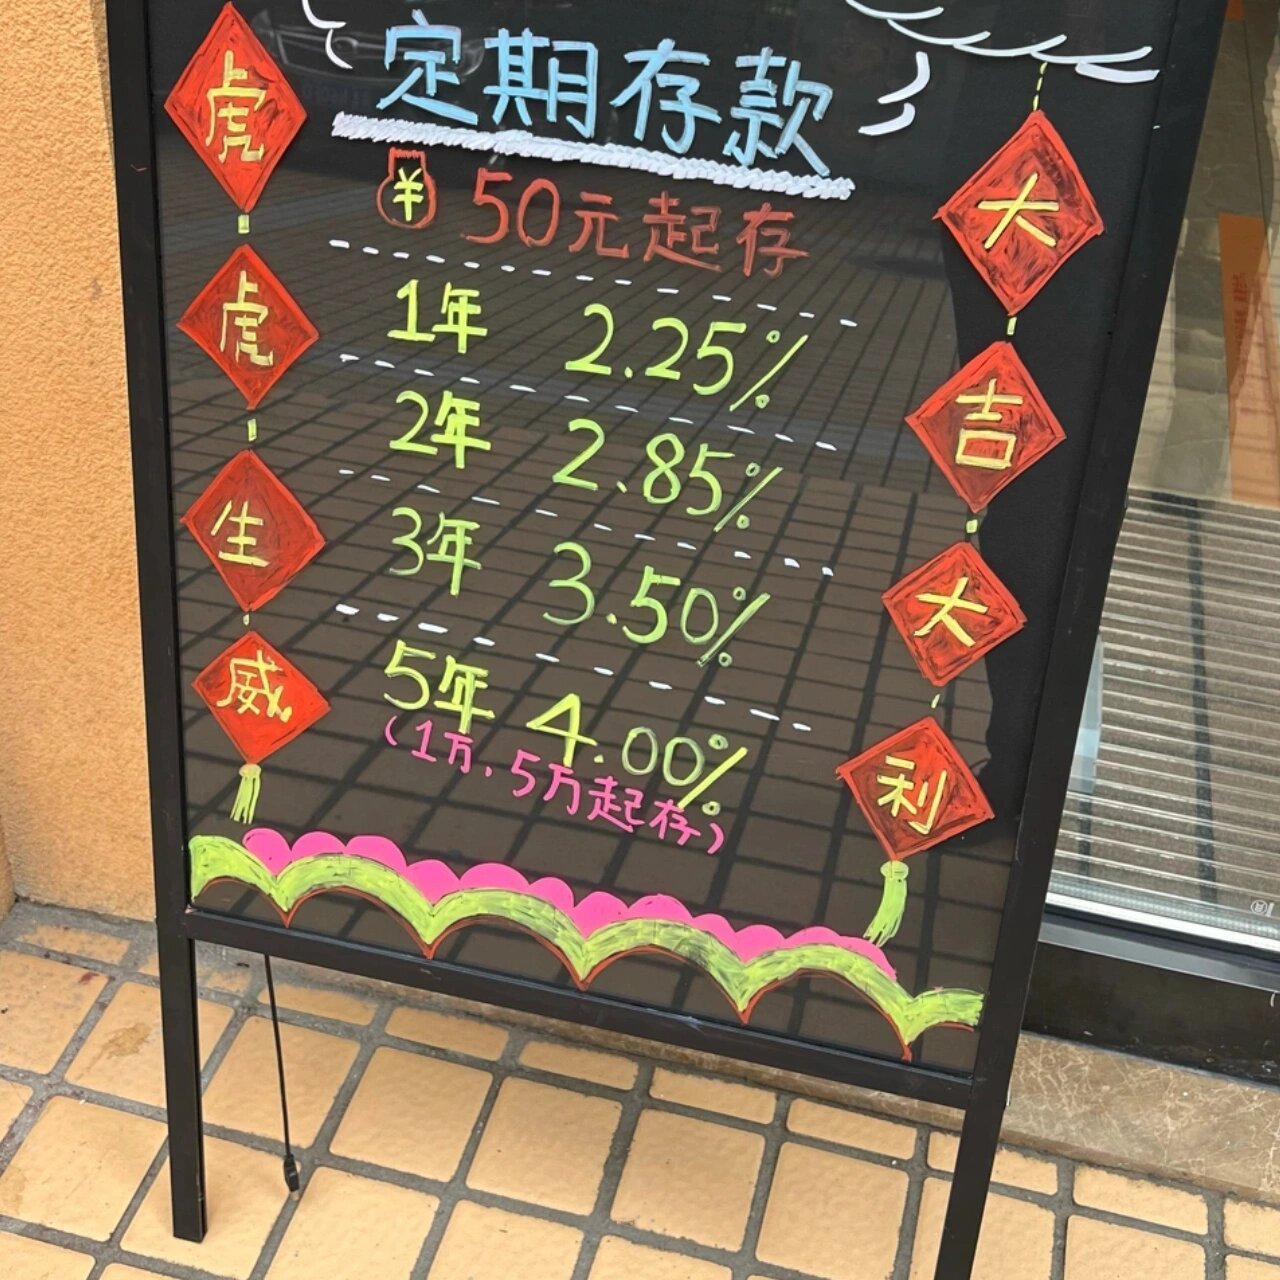 定期存款
¥ 50元起存
1年 2.25%
2年 2.85%
3年 3.50%
5年 4.00%
(1万、5万起存)
虎虎生威
大吉大利